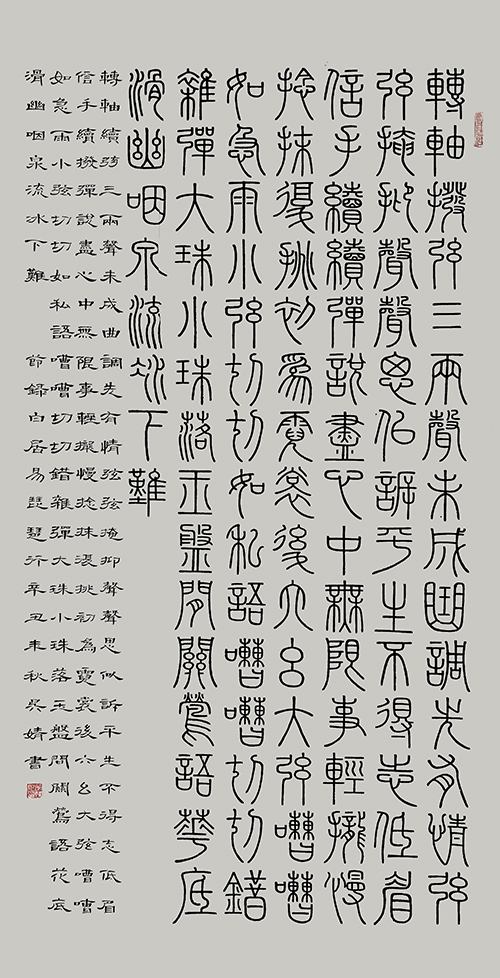 轉軸撥弦三兩聲未成曲調先有情弦
弦掩抑聲聲思似訴平生不得志低眉
信手續續彈說盡心中無限事輕攏慢
捻抹復挑初為霓裳後六幺大弦嘈嘈
如急雨小弦切切如私語嘈嘈切切錯
雜彈大珠小珠落玉盤間關鶯語華底
滑幽咽泉流冰下難
轉軸續弦三兩聲未成曲調先有情弦弦掩抑聲聲思似訴平生不得志低眉
信手續撥彈說盡心中無限事輕攏慢捻抹復挑初為霓裳後六幺大弦嘈嘈
如急雨小弦切切如私語嘈嘈切切錯雜彈大珠小珠落玉盤間關鶯語花底
滑幽咽泉流冰下難 節錄白居易琵琶行辛丑年秋吳婧書